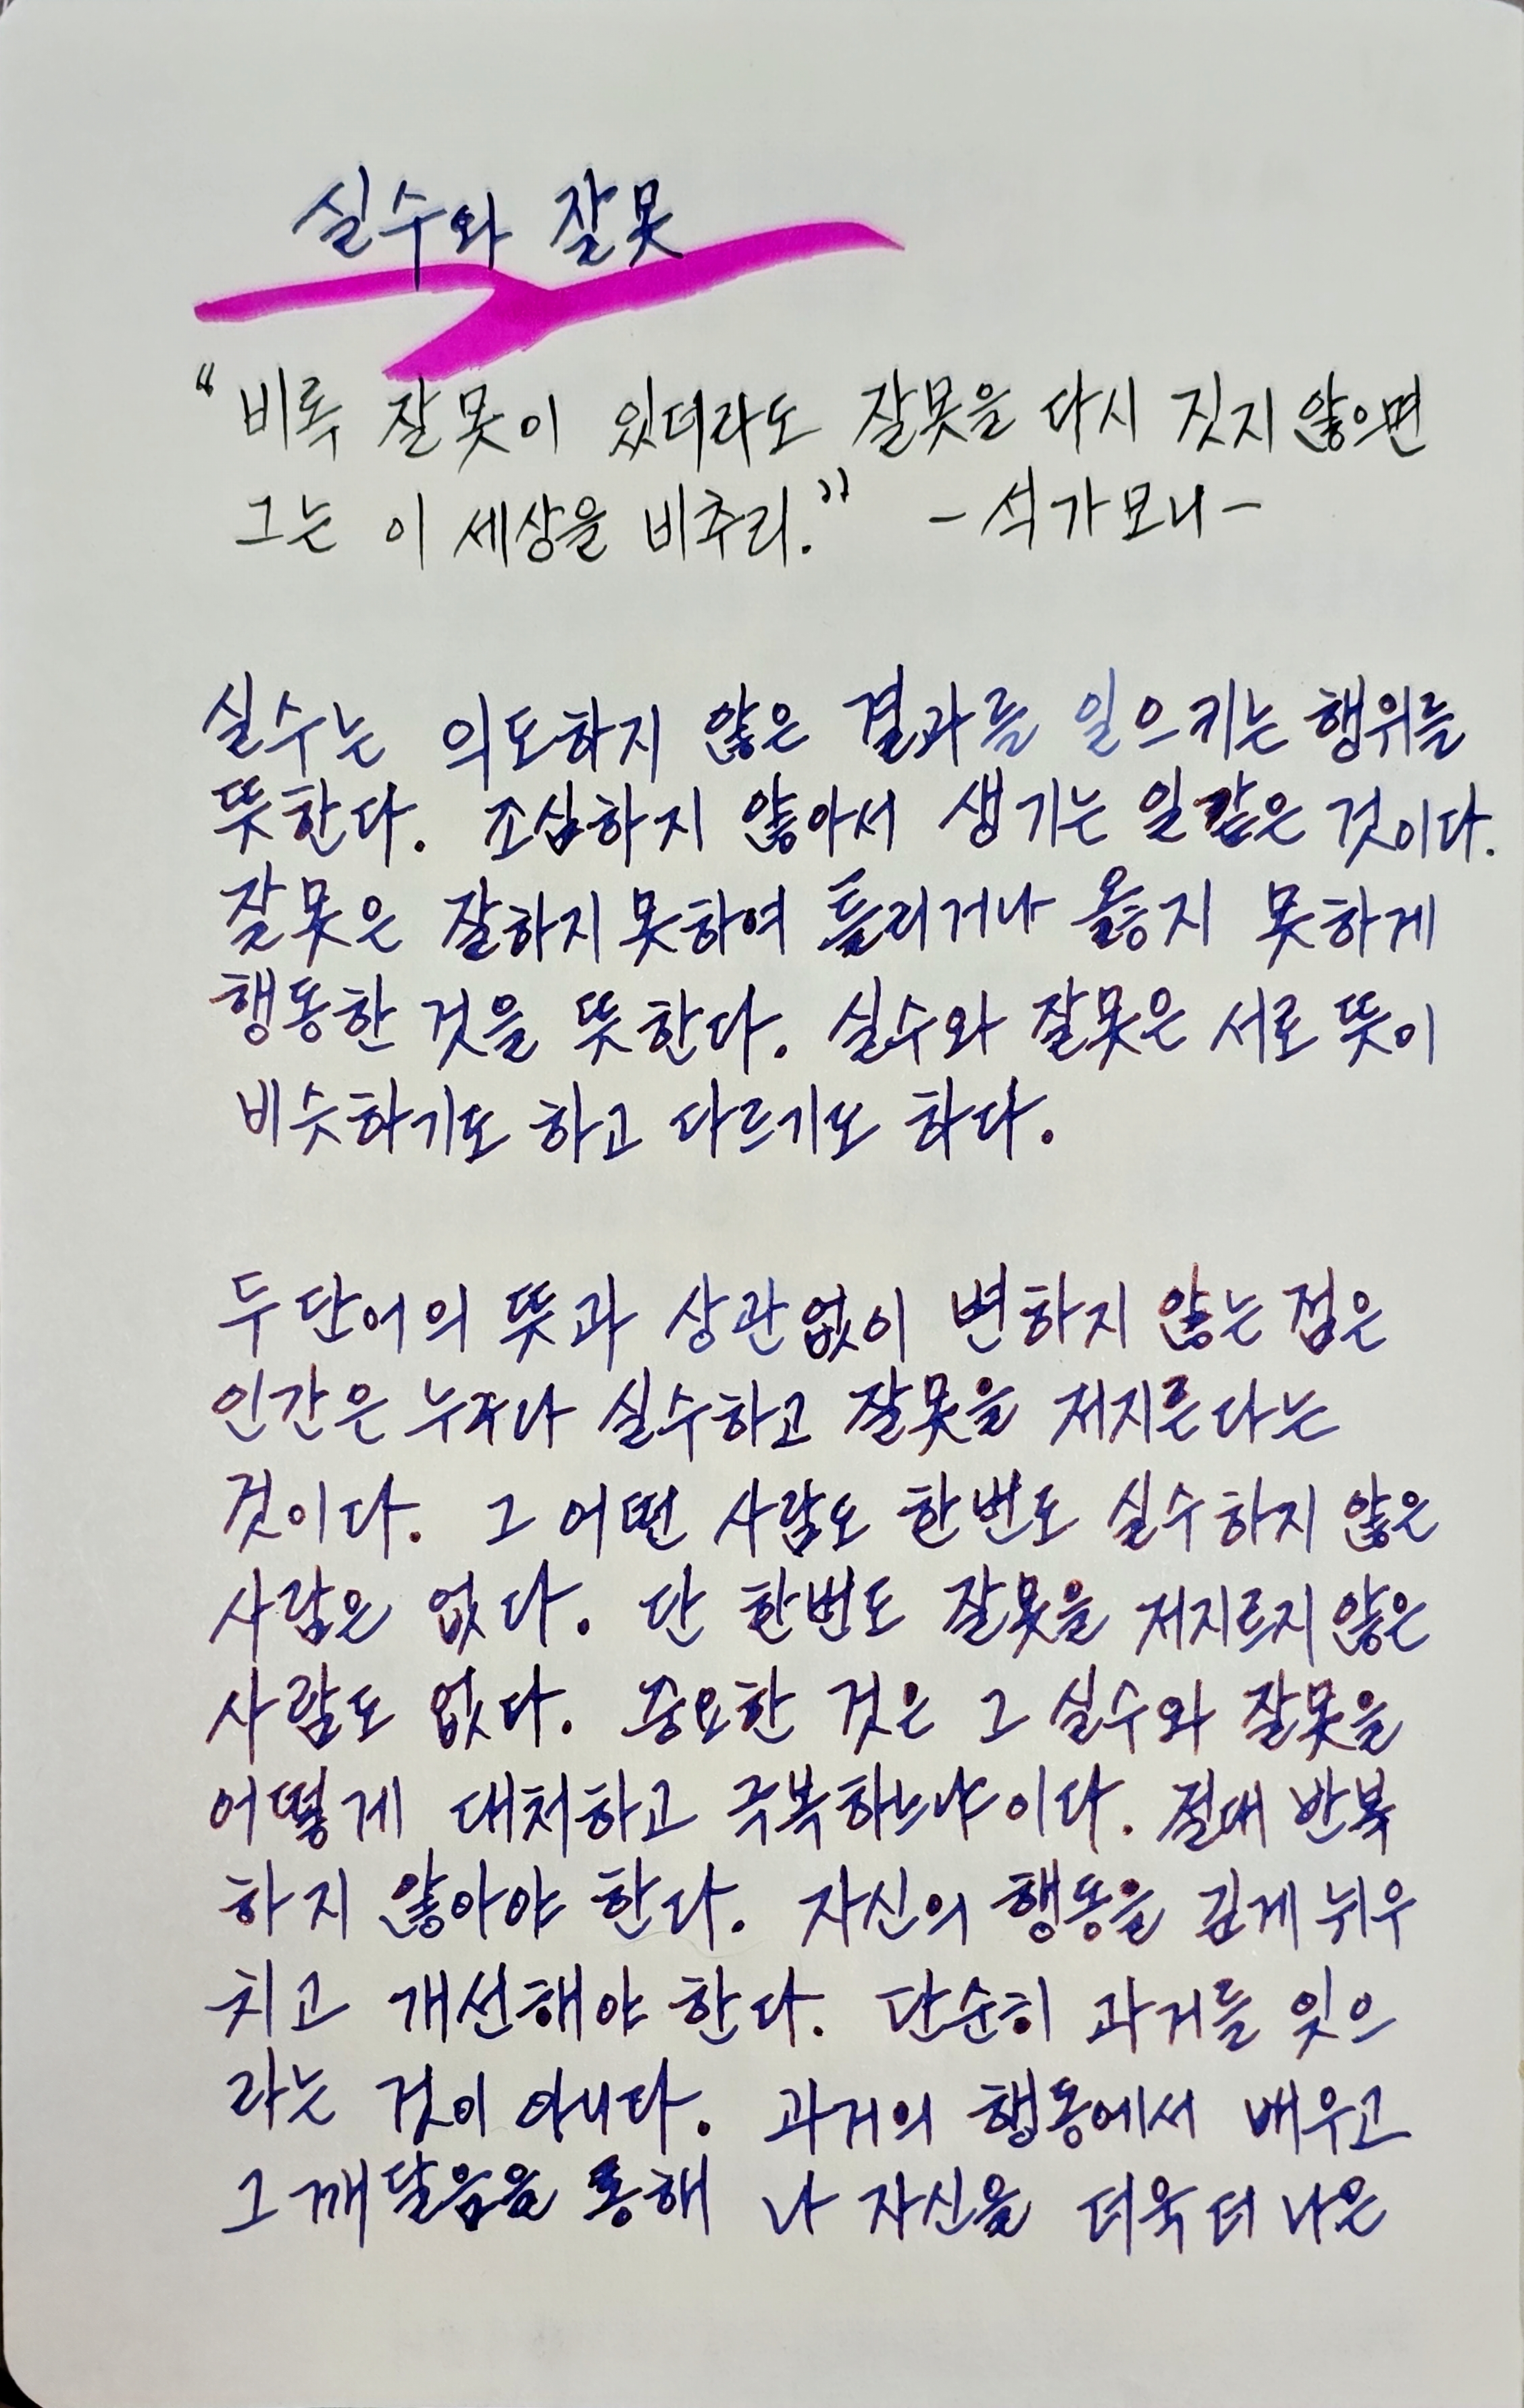 실수와 잘못
"비록 잘못이 있더라도 잘못을 다시 짓지 않으면
그는 이 세상을 비추리." - 석가모니 -
실수는 의도하지 않은 결과를 일으키는 행위를
뜻한다. 조심하지 않아서 생기는 일 같은 것이다.
잘못은 잘하지 못하여 틀리거나 옳지 못하게
행동한 것을 뜻한다. 실수와 잘못은 서로 뜻이
비슷하기도 하고 다르기도 하다.
두 단어의 뜻과 상관없이 변하지 않는 점은
인간은 누구나 실수하고 잘못을 저지른다는
것이다. 그 어떤 사람도 한번도 실수하지 않은
사람은 없다. 단 한번도 잘못을 저지르지 않은
사람도 없다. 중요한 것은 그 실수와 잘못을
어떻게 대처하고 극복하느냐이다. 절대 반복
하지 않아야 한다. 자신의 행동을 깊게 뉘우
치고 개선해야 한다. 단순히 과거를 잊으
라는 것이 아니다. 과거의 행동에서 배우고
그 깨달음을 통해 나 자신을 더욱 더 나은